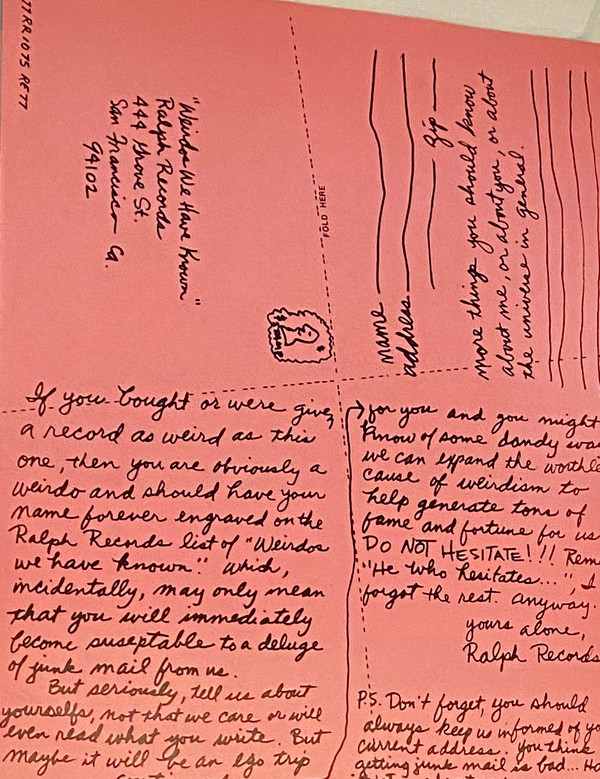 77 RR 1075 RE 77
"Weirdos We Have Known"
Ralph Records
444 Grove St.
San Francisco Ca.
94102
FOLD HERE
name
address
zip
more things you should know
about me, or about you, or about
the universe in general.
If you bought or were given
a record as weird as this
one, then you are obviously a
weirdo and should have your
name forever engraved on the
Ralph Records list of "Weirdos
we have known." Which,
incidentally, may only mean
that you will immediately
become suseptable to a deluge
of junk mail from us.
But seriously, tell us about
yourselfs, not that we care or will
even read what you write. But
maybe it will be an ego trip
for you and you might
know of some dandy
we can expand the
cause of weirdism to
help generate tons of
fame and fortune for us
DO NOT HESITATE!!!
"He who hesitates...", I
forgot the rest. Anyway.
yours alone,
Ralph Records
P.S. Don't forget, you should
always keep us informed of
current address. You think
getting junk mail is bad...